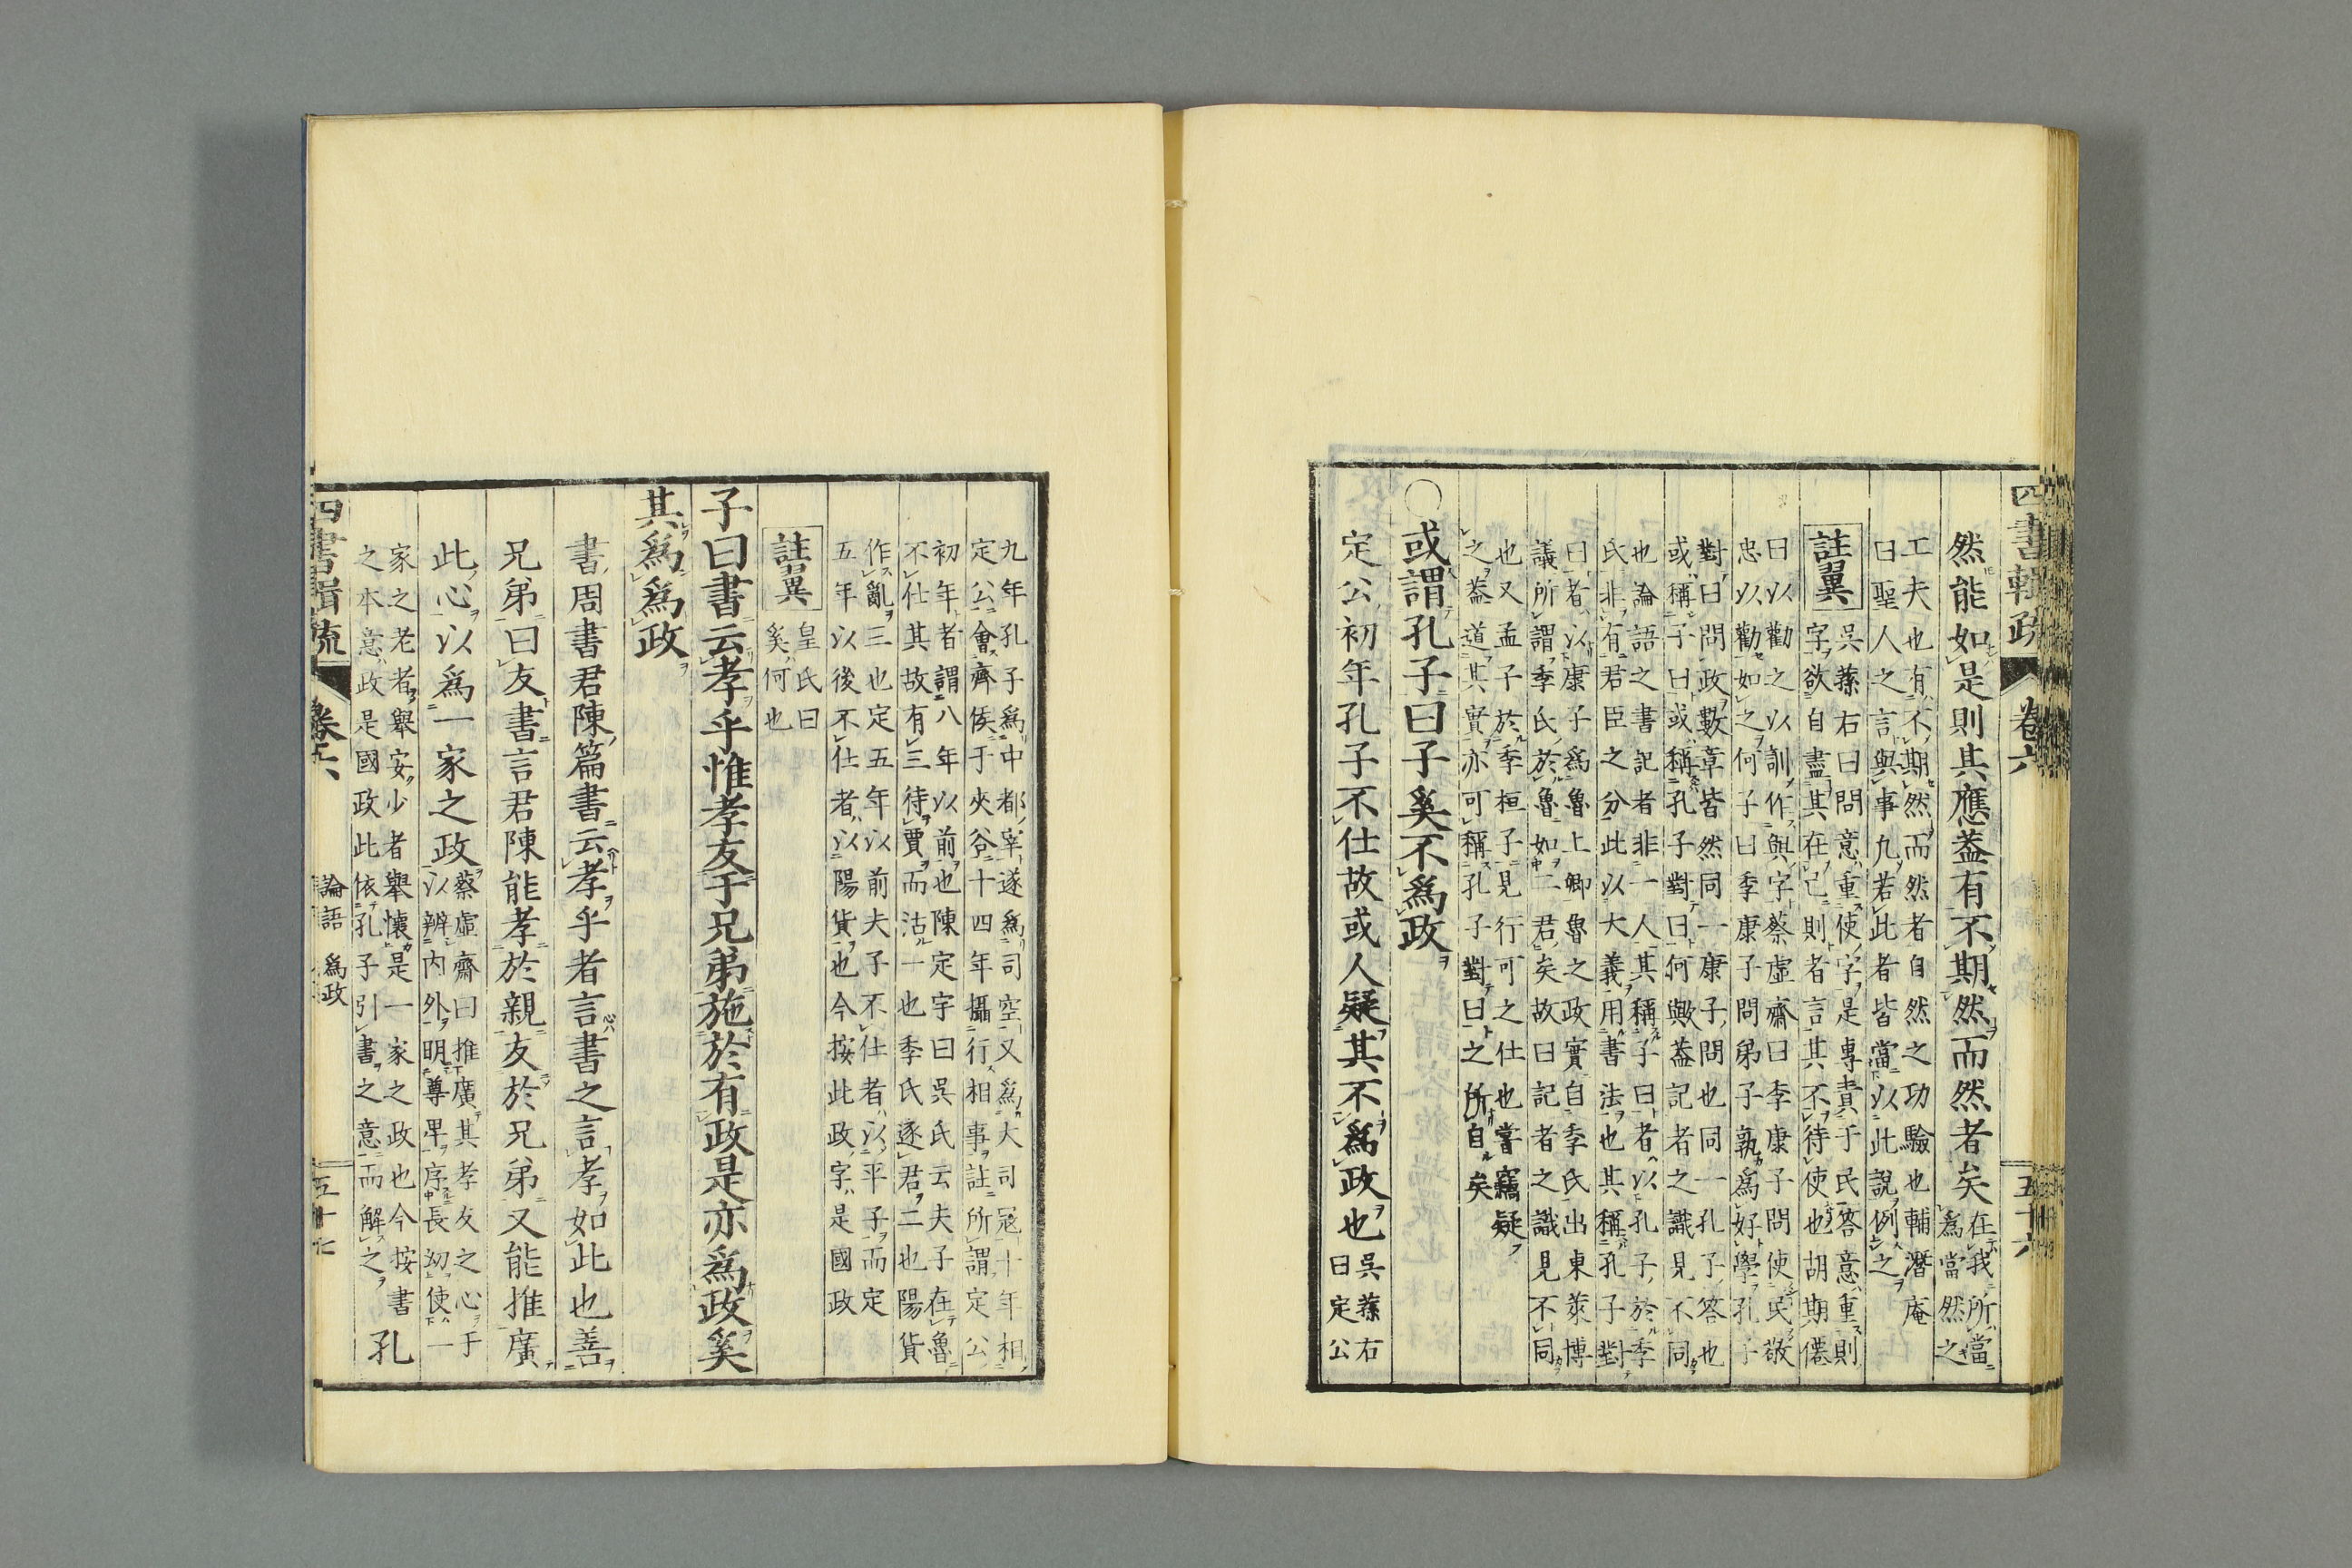 四書輯疏
卷六
五十六
然能如是則其應葢有不期然而然者矣在我所當
爲當然之
工夫也有不期然而然者自然之功驗也輔潛庵
曰聖人之言與事凡若此者皆當以此說例之
註翼
吳蓀右曰問意重使字是專責于民答意重則
字欲自盡其在己則者言其不待使也胡期僊
曰以勸之以訓作與字蔡虛齋曰季康子問使民敬
忠以勸如之何子曰季康子問弟子孰爲好學孔子
對曰問政數章皆然同一康子問也同一孔子答也
或稱子曰或稱孔子對曰何與葢記者之識見不同
也論語之書記者非一人其稱子曰者以孔子於季
氏非有君臣之分此以大義用書法也其稱孔子對
曰者以康子爲魯上卿魯之政實自季氏出東萊博
議所謂季氏於魯如二君矣故曰記者之識見不同
也又孟子於季桓子見行可之仕也嘗竊疑
之葢道其實亦可稱孔子對曰之所自矣
○或謂孔子曰子奚不爲政
定公初年孔子不仕故或人疑其不爲政也吳蓀右
曰定公
九年孔子爲中都宰遂爲司空又爲大司冦十年相
定公會齊侯于夾谷十四年攝行相事註所謂定公
初年者謂八年以前也陳定宇曰吳氏云夫子在魯
不仕其故有三待賈而沽一也季氏逐君二也陽貨
作亂三也定五年以前夫子不仕者以平子而定
五年以後不仕者以陽貨也今按此政字是國政
註翼
皇氏曰
奚何也
子曰書云孝乎惟孝友于兄弟施於有政是亦爲政奚
其爲爲政
書周書君陳篇書云孝乎者言書之言孝如此也善
兄弟曰友書言君陳能孝於親友於兄弟又能推廣
此心以爲一家之政蔡虛齋曰推廣其孝友之心于
以辨內外明尊卑序長幼使一
家之老者舉安少者舉懷是一家之政也今按書
之本意政是國政此依孔子引書之意而解之
孔
四書輯疏
卷六
論語 爲政
五十七